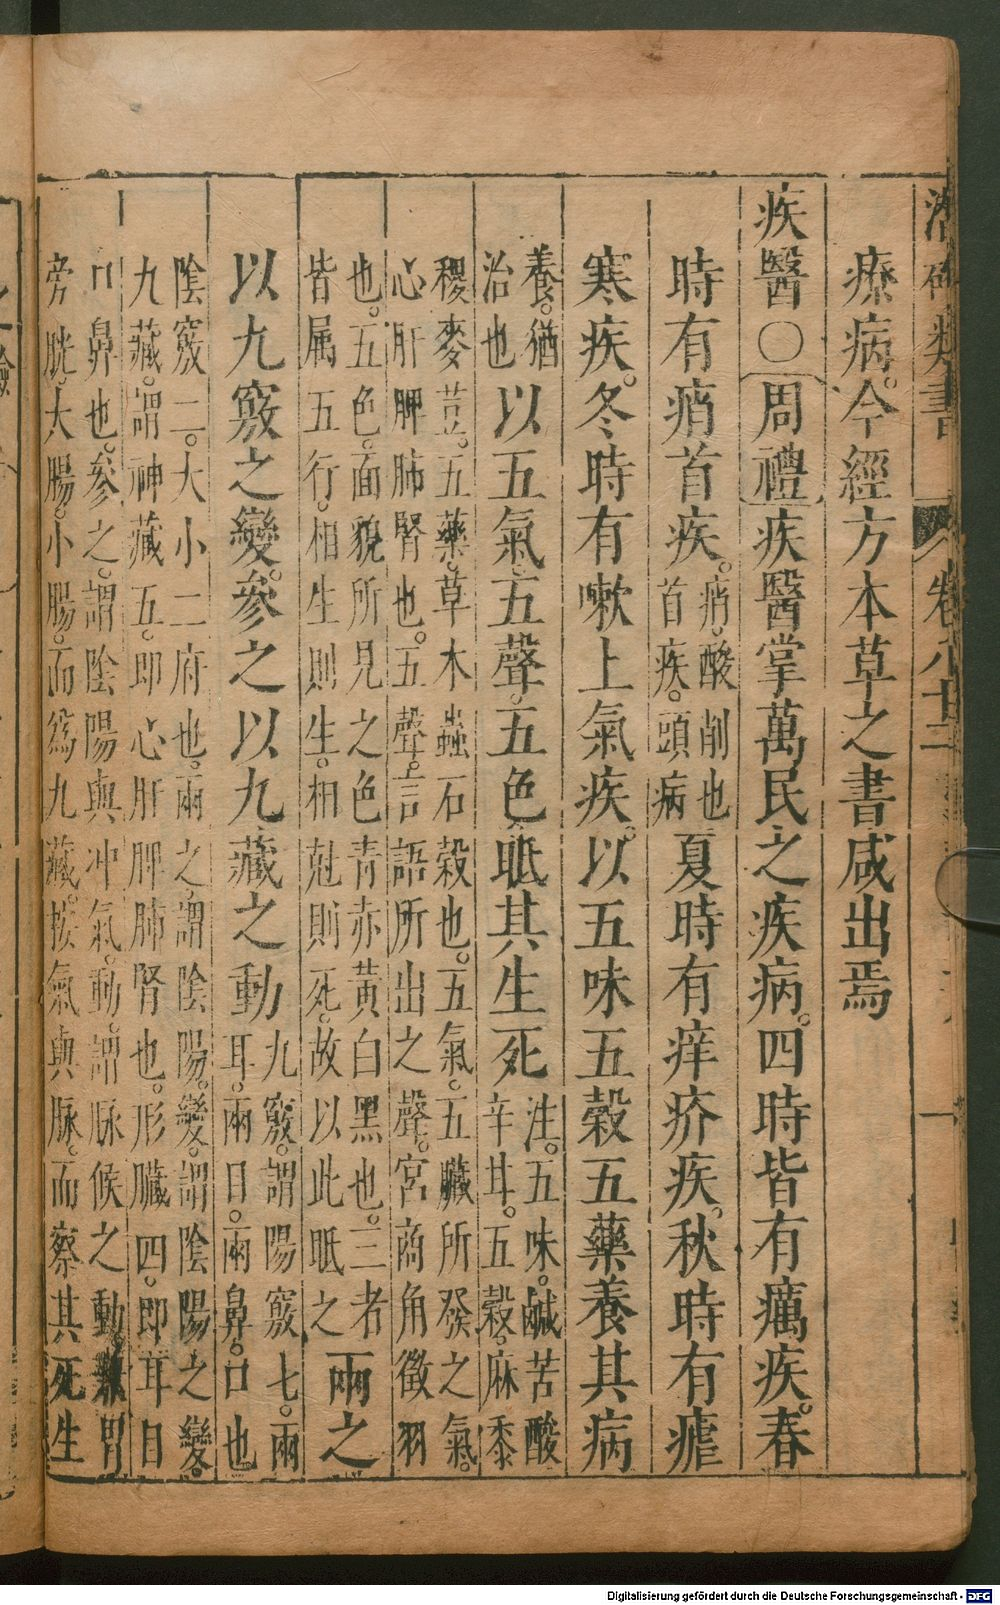 潛確類書 卷八十二
療病。今經方本草之書咸出焉
疾醫〇周禮疾醫掌萬民之疾病。四時皆有癘疾。春
時有痟首疾。痟。酸削也首疾。頭病夏時有痒疥疾。秋時有瘧
寒疾。冬時有嗽上氣疾。以五味五穀五藥養其病
養。猶治也以五氣。五聲。五色眡其生死注。五味。鹹苦酸辛甘。五穀。麻黍
稷麥荳。五藥。草木蟲石穀也。五氣。五臟所發之氣。
心肝脾肺腎也。五聲。言語所出之聲。宮商角徵羽
也。五色。面貌所見之色青赤黃白黑也。三者
皆属五行。相生則生。相尅則死。故以此眡之兩之
以九竅之變。參之以九藏之動九竅。謂陽竅七。兩耳。兩目。兩鼻。口也
陰竅二。大小二府也。兩之。謂陰陽。變。謂陰陽之變。
九藏。謂神藏五。即心肝脾肺腎也。形臟四。即耳目
口鼻也。參之。謂陰陽與冲氣。動。謂脉候之動。兼胃
旁胱。大腸。小腸。而爲九藏。按氣與脉。而察其死生
Digitalisierung gefördert durch die Deutsche Forschungsgemeinschaft - DFG